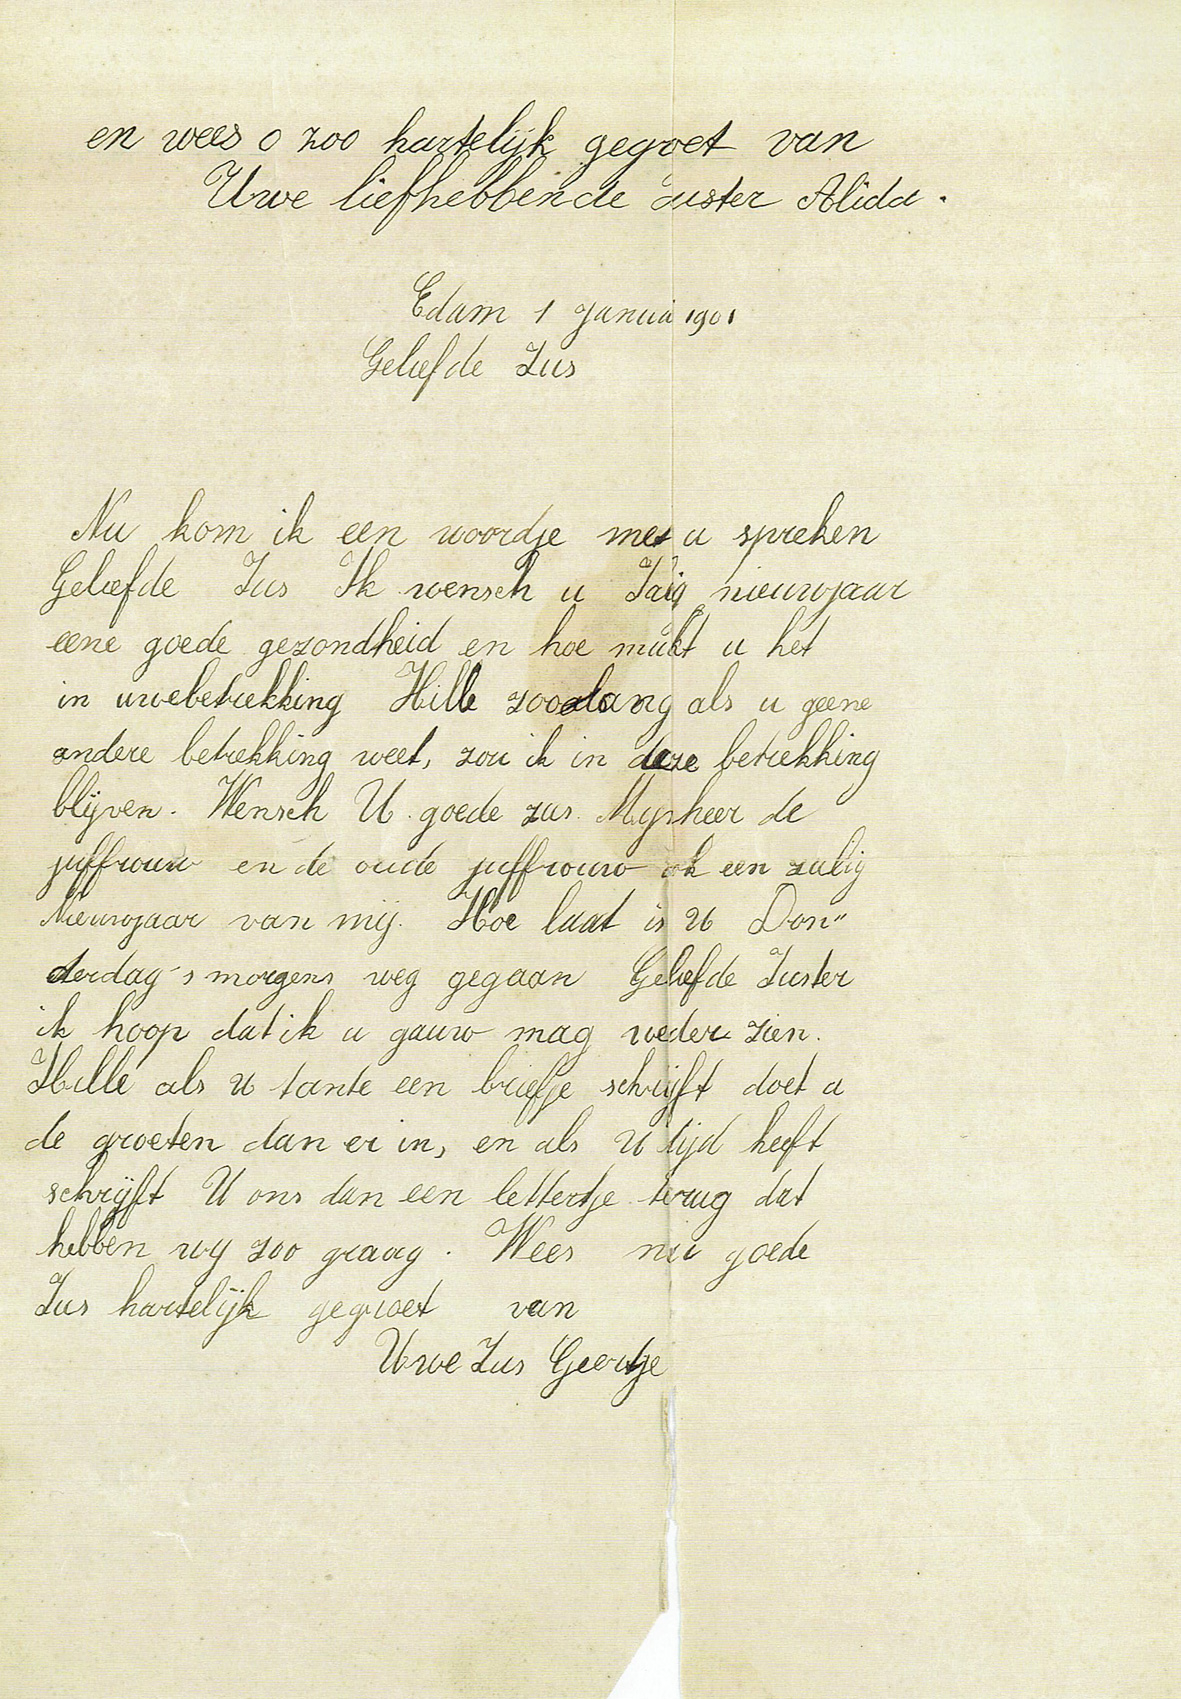 en wees o zoo hartelijk gegroet van
Uwe liefhebbende zuster Alida.
Edam 1 Janua 1901
Geliefde Zus
Nu kom ik een woordje met u spreken
Geliefde Zus Ik wensch u Zalig nieuwjaar
eene goede gezondheid en hoe makt u het
in uwebetrekking Hille zoolang als u geene
andere betrekking weet, zou ik in deze betrekking
blijven. Wensch U goede zus Mynheer de
juffrouw en de oude juffrouw ok een zalig
Nieuwjaar van mij. Hoe laat is U Don"
derdag 's morgens weg gegaan Geliefde Zuster
ik hoop dat ik u gauw mag weder zien.
Hille als U tante een briefje schrijft doet u
de groeten dan er in, en als U tijd heeft
schrijft U ons dan een lettertje terug dat
hebben wy zoo graag. Wees nu goede
Zus hartelijk gegroet van
Uwe Zus Geertje